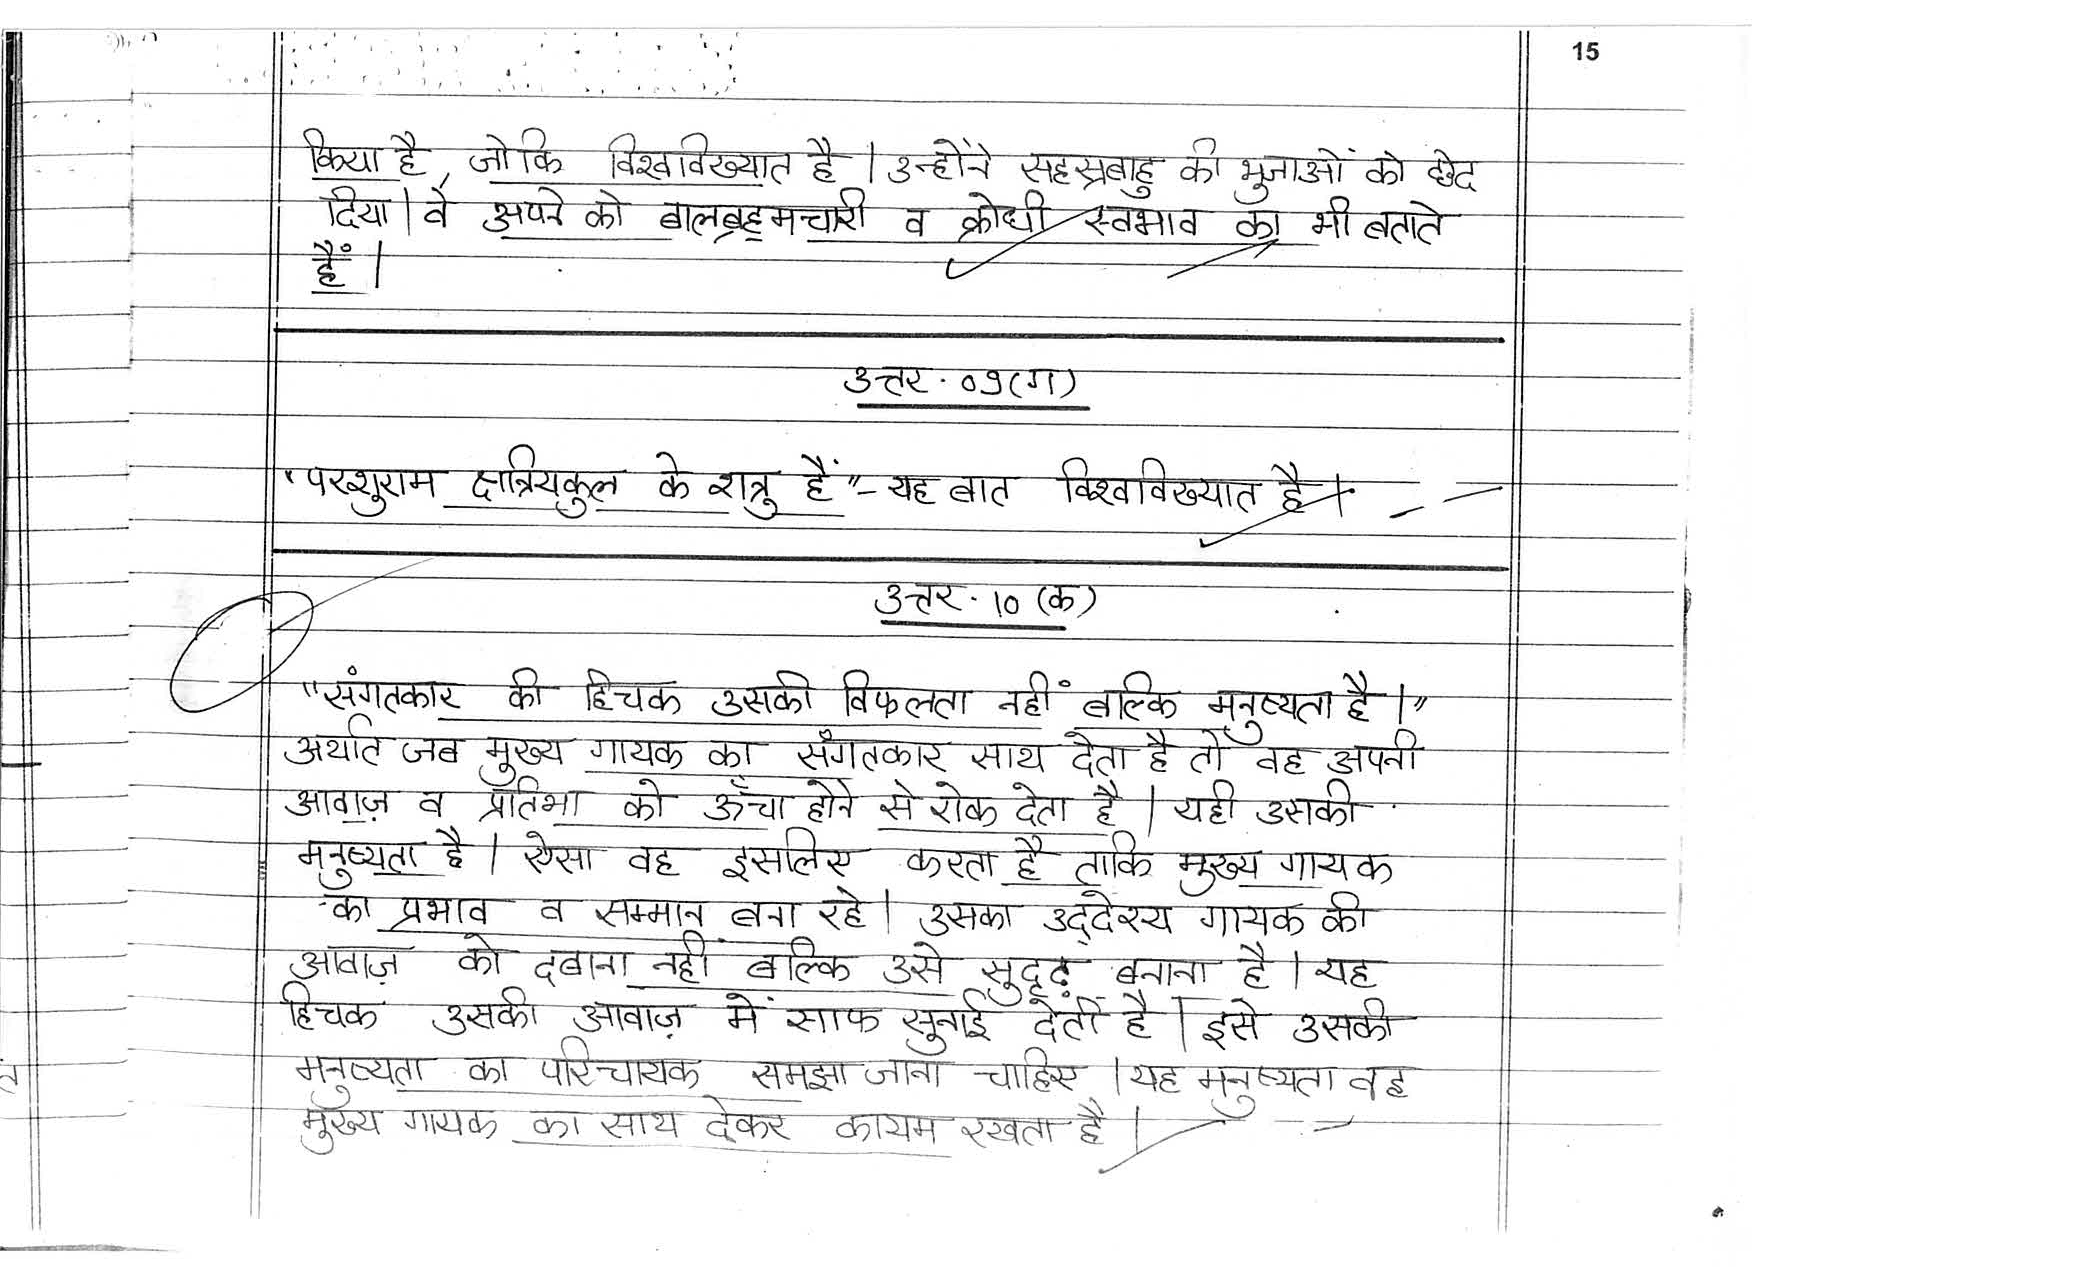 15
किया है, जो कि विश्वविख्यात है। उन्होंने सहस्रबाहु की भुजाओं को छेद
दिया। वे अपने को बालब्रह्मचारी व क्रोधी स्वभाव का भी बताते
हैं।
उत्तर. 09(ग)
"परशुराम क्षत्रियकुल के शत्रु हैं"- यह बात विश्वविख्यात है।
उत्तर. 10 (क)
"संगतकार की हिचक उसकी विफलता नहीं बल्कि मनुष्यता है।"
अर्थात जब मुख्य गायक का सँगतकार साथ देता है तो वह अपनी
आवाज़ व प्रतिभा को ऊँचा होने से रोक देता है। यही उसकी
मनुष्यता है। ऐसा वह इसलिए करता है ताकि मुख्य गायक
का प्रभाव व सम्मान बना रहे। उसका उद्देश्य गायक की
आवाज़ को दबाना नहीं बल्कि उसे सुदृढ़ बनाना है। यह
हिचक उसकी आवाज़ में साफ सुनाई देती है। इसे उसकी
मनुष्यता का परिचायक समझा जाना चाहिए। यह मनुष्यता वह
मुख्य गायक का साथ देकर कायम रखता है।